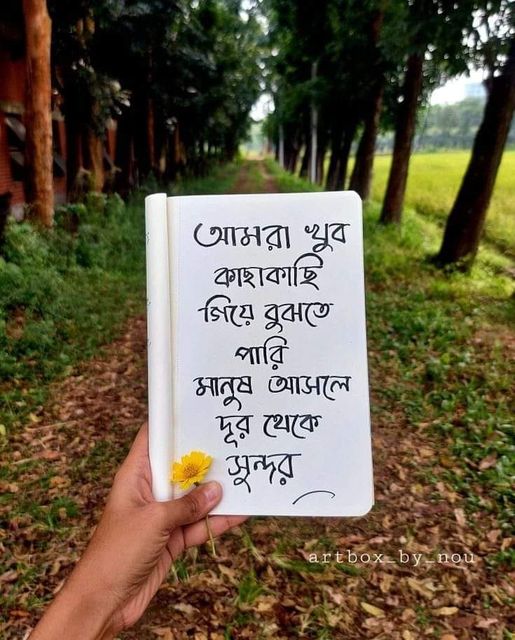 আমরা খুব
কাছাকাছি
গিয়ে বুঝতে
পারি
মানুষ আসলে
দূর থেকে
সুন্দর
artbox_by_nou